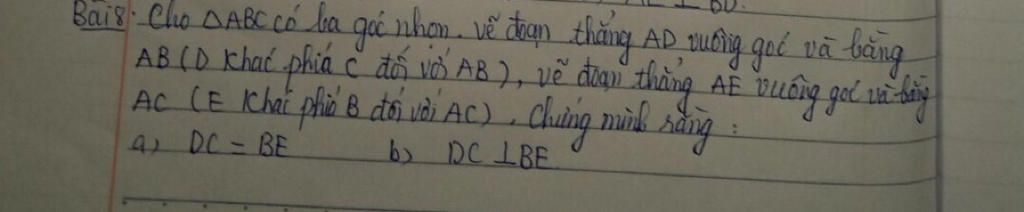 AE ⊥ BD.
Bài 8: Cho △ABC có ba góc nhọn. vẽ đoạn thẳng AD vuông góc và bằng
AB (D khác phía C đối với AB), vẽ đoạn thẳng AE vuông góc và bằng
AC (E khác phía B đối với AC). Chứng minh rằng :
a) DC = BE b) DC ⊥ BE